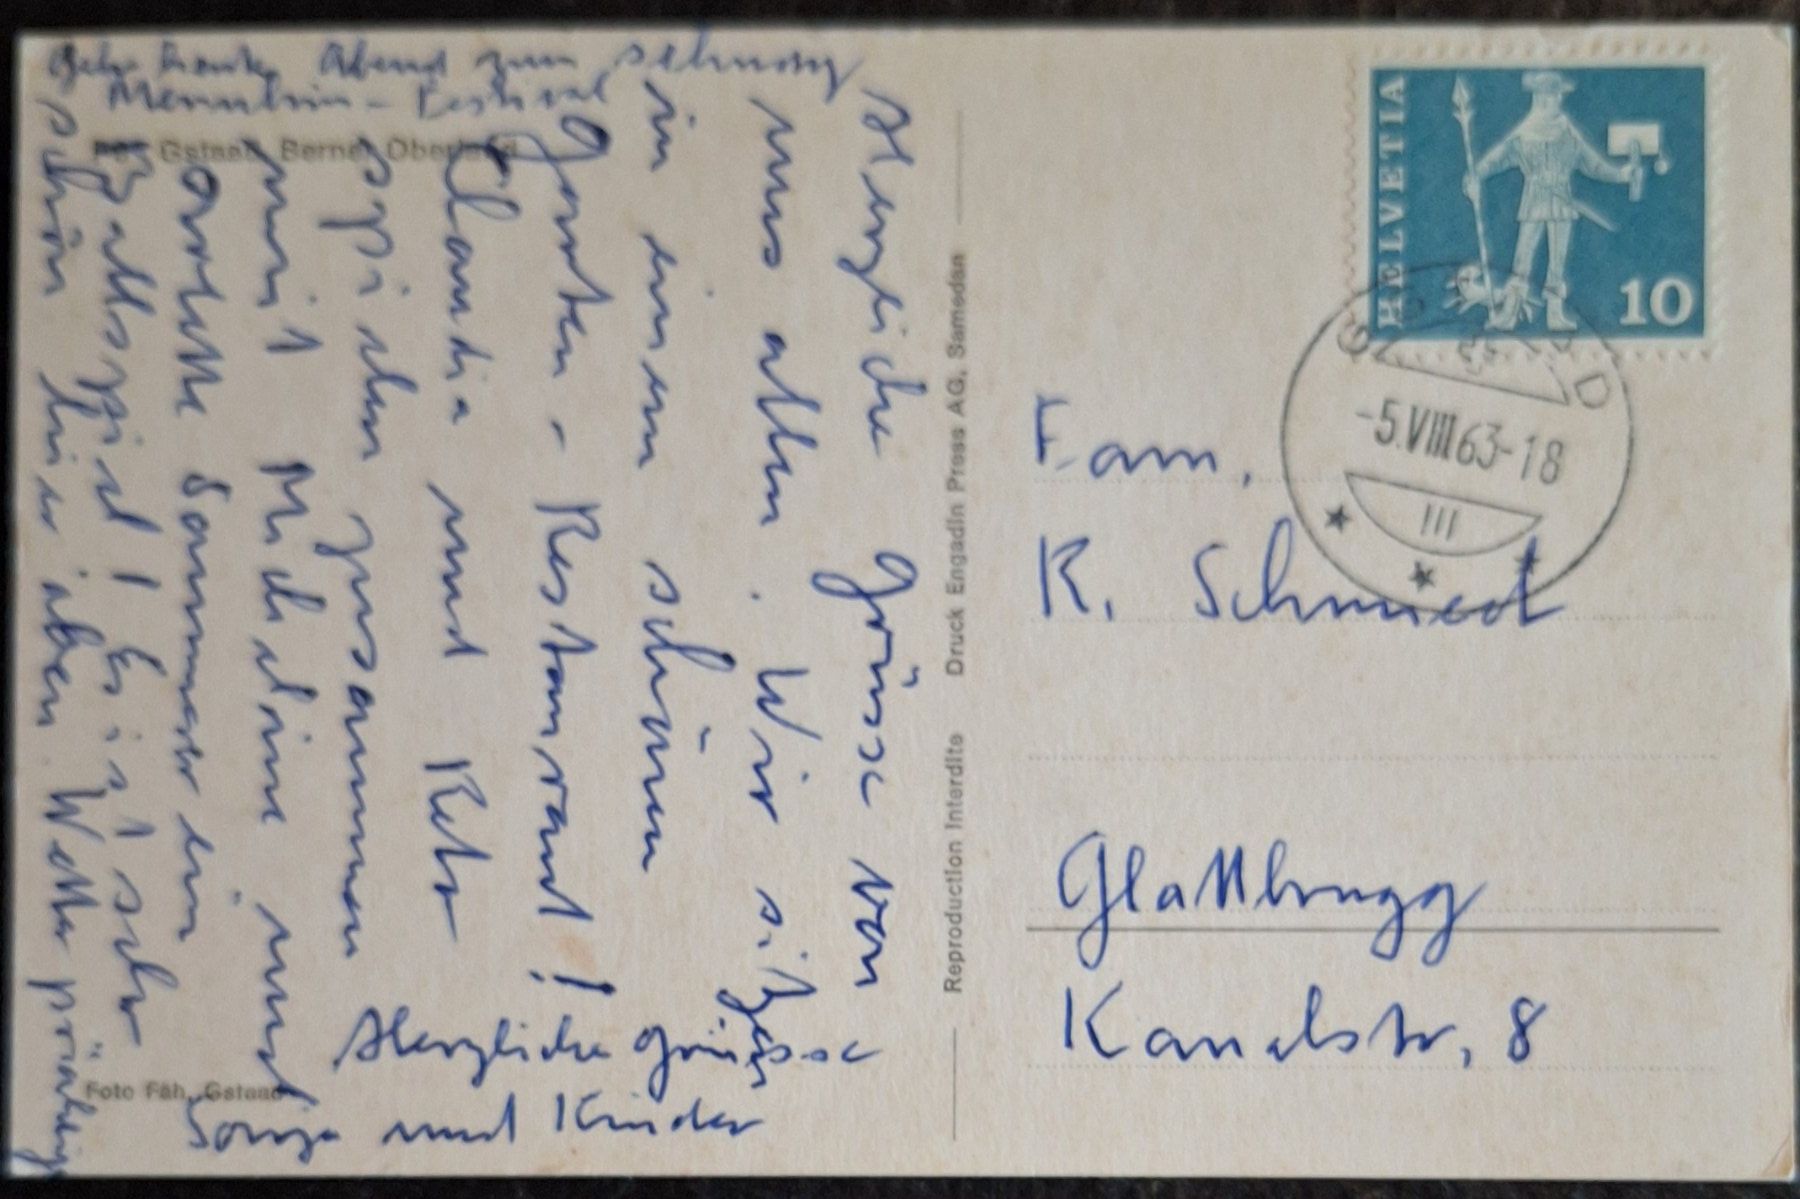 Herzliche Grüsse von
uns allen. Wir sitzen
in einem schönen
Garten-Restaurant!
Claudia und Reto
spielen zusammen
mit Micheline und
Colette Sommer ein
Ballspiel! Es ist sehr
schön hier oben. Wetter prächtig
Gehe heute Abend zum
Menuhin-Festival
Herzliche Grüsse
Sonja und Kinder
Gstaad, Berner Oberland
Foto Fäh, Gstaad
Reproduction Interdite Druck Engadin Press AG, Samedan
HELVETIA
10
GSTAAD
-5.VIII.63-18
Fam.
R. Schmied
Glattbrugg
Kanalstr. 8